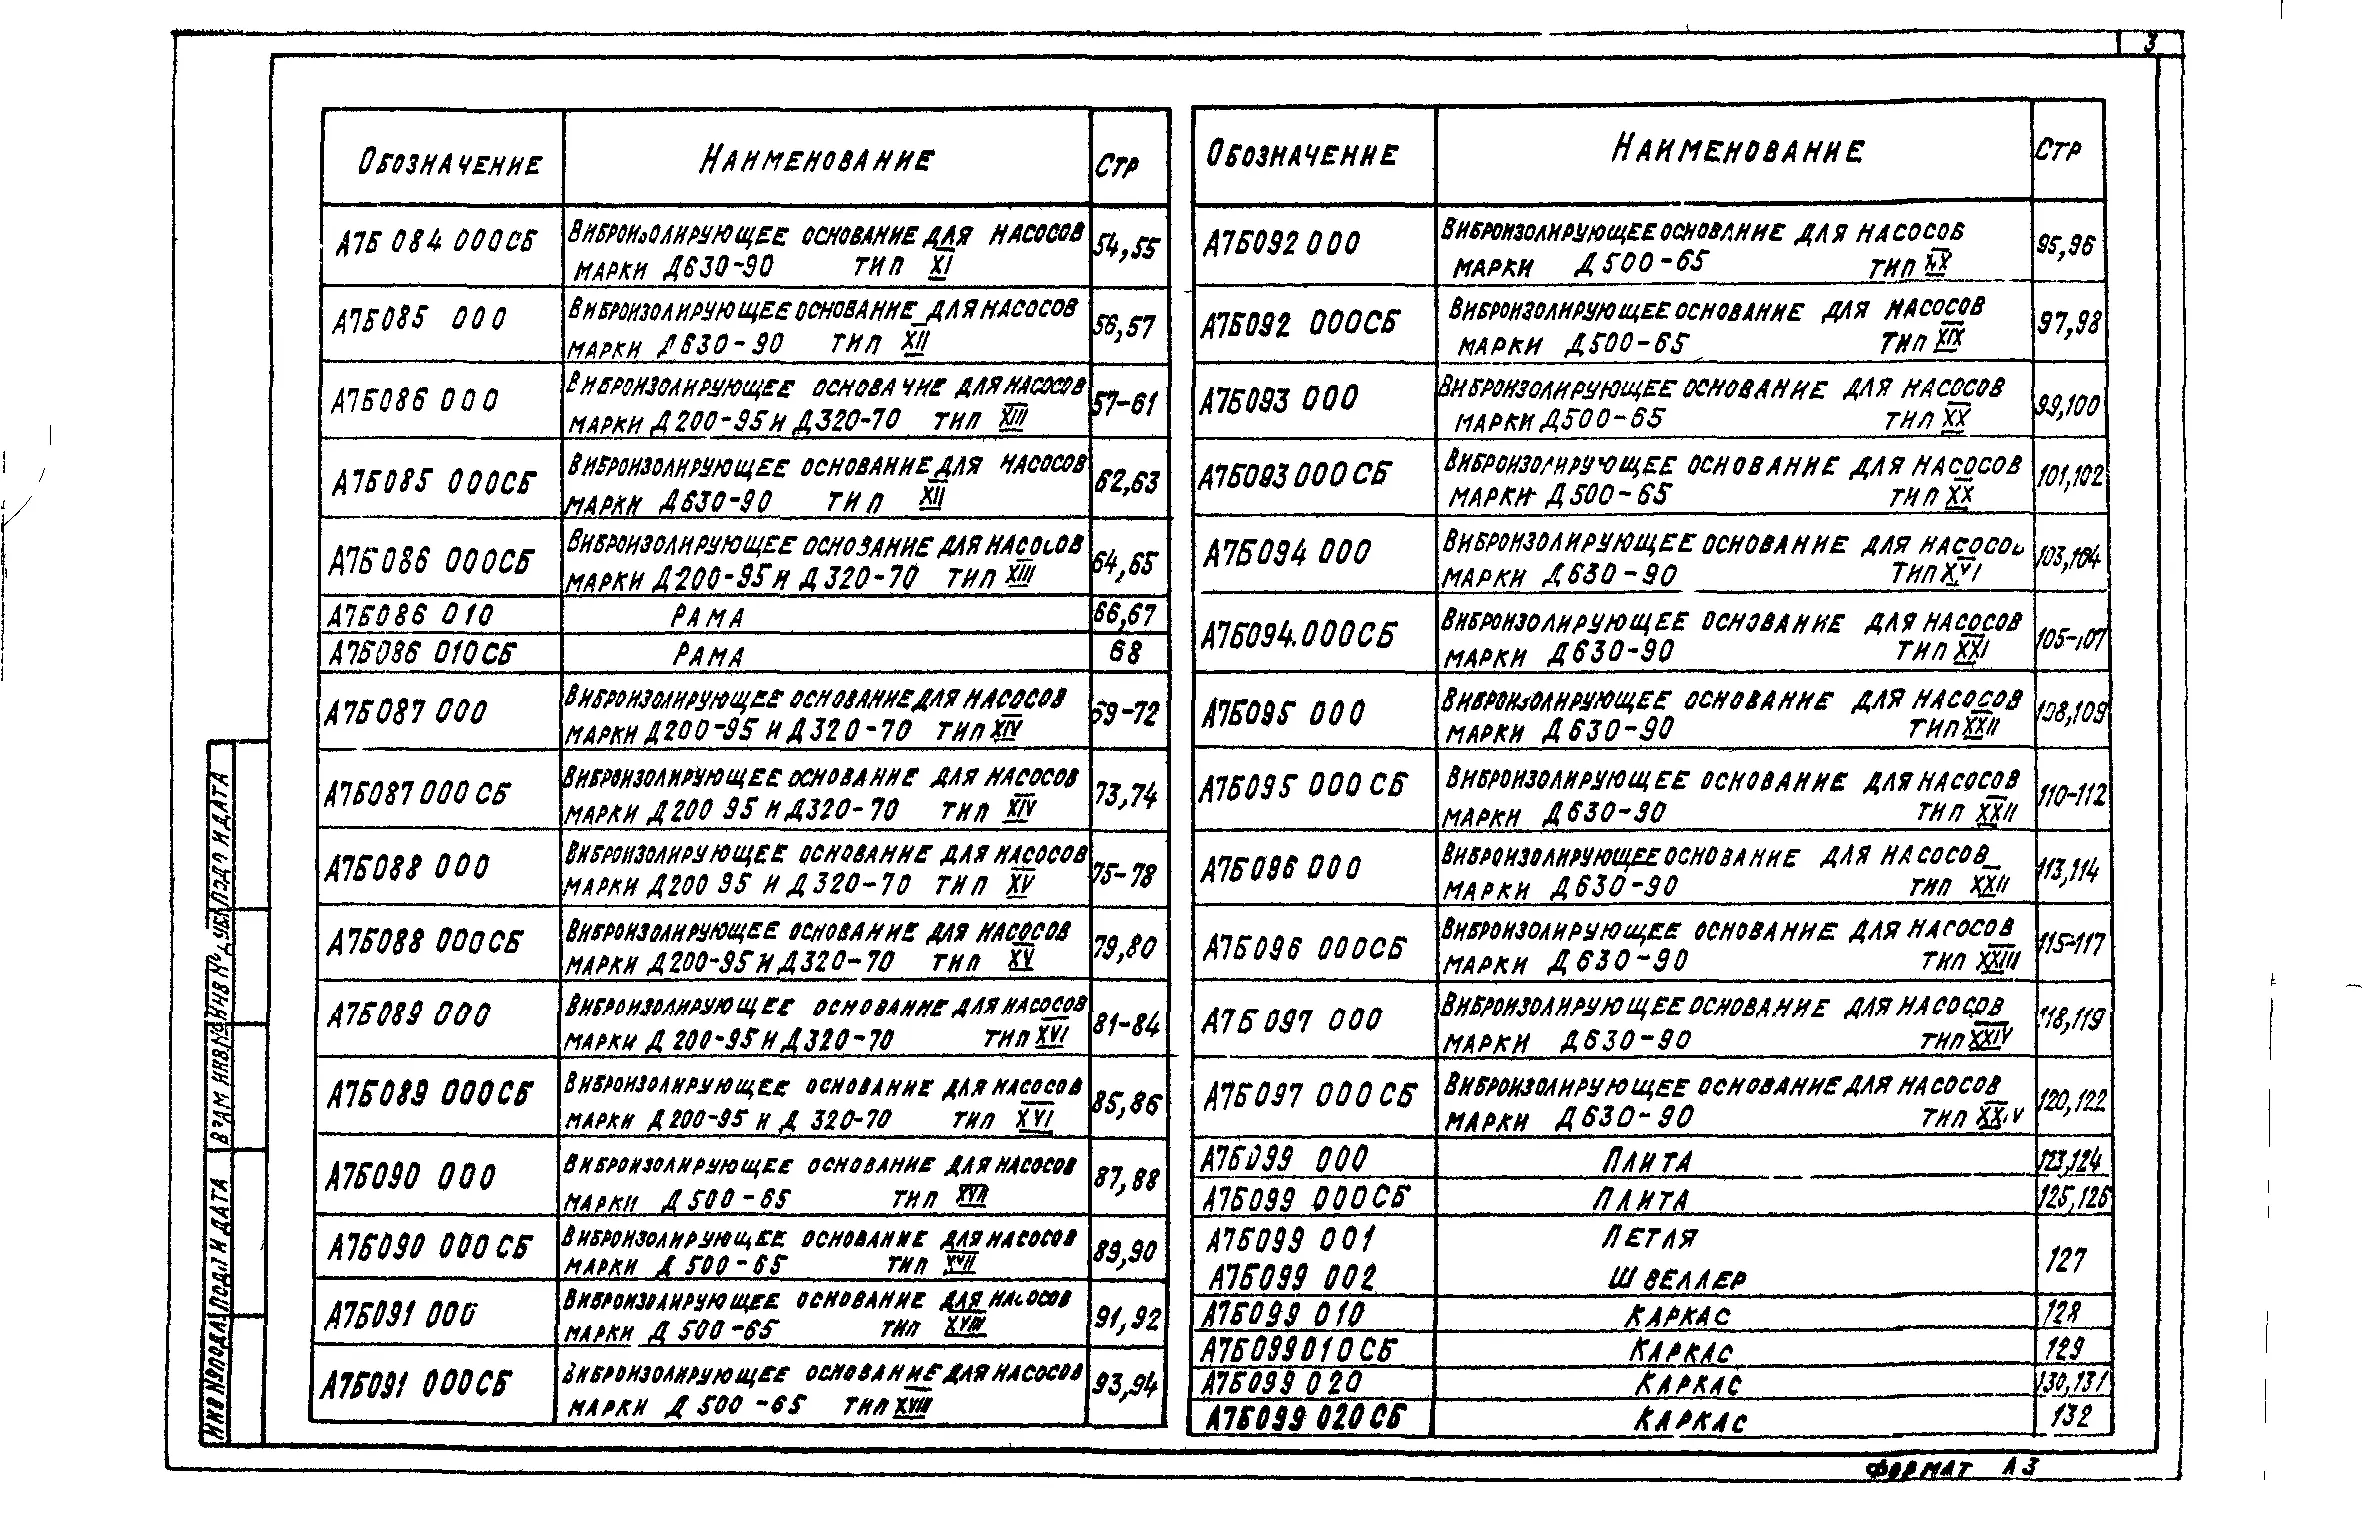 3
ОБОЗНАЧЕНИЕ НАИМЕНОВАНИЕ СТР
А7Б 084 000СБ ВИБРОИЗОЛИРУЮЩЕЕ ОСНОВАНИЕ ДЛЯ НАСОСОВ 54,55
МАРКИ Д630-90 ТИП XI
А7Б085 000 ВИБРОИЗОЛИРУЮЩЕЕ ОСНОВАНИЕ ДЛЯ НАСОСОВ 56,57
МАРКИ Д630-90 ТИП XII
А7Б086 000 ВИБРОИЗОЛИРУЮЩЕЕ ОСНОВАНИЕ ДЛЯ НАСОСОВ 57-61
МАРКИ Д200-95 И Д320-70 ТИП XIII
А7Б085 000СБ ВИБРОИЗОЛИРУЮЩЕЕ ОСНОВАНИЕ ДЛЯ НАСОСОВ 62,63
МАРКИ Д630-90 ТИП XII
А7Б086 000СБ ВИБРОИЗОЛИРУЮЩЕЕ ОСНОВАНИЕ ДЛЯ НАСОСОВ 64,65
МАРКИ Д200-95 И Д320-70 ТИП XIII
А7Б086 010 РАМА 66,67
А7Б086 010СБ РАМА 68
А7Б087 000 ВИБРОИЗОЛИРУЮЩЕЕ ОСНОВАНИЕ ДЛЯ НАСОСОВ 69-72
МАРКИ Д200-95 И Д320-70 ТИП XIV
А7Б087 000СБ ВИБРОИЗОЛИРУЮЩЕЕ ОСНОВАНИЕ ДЛЯ НАСОСОВ 73,74
МАРКИ Д200 95 И Д320-70 ТИП XIV
А7Б088 000 ВИБРОИЗОЛИРУЮЩЕЕ ОСНОВАНИЕ ДЛЯ НАСОСОВ 75-78
МАРКИ Д200 95 И Д320-70 ТИП XV
А7Б088 000СБ ВИБРОИЗОЛИРУЮЩЕЕ ОСНОВАНИЕ ДЛЯ НАСОСОВ 79,80
МАРКИ Д200-95 И Д320-70 ТИП XV
А7Б089 000 ВИБРОИЗОЛИРУЮЩЕЕ ОСНОВАНИЕ ДЛЯ НАСОСОВ 81-84
МАРКИ Д200-95 И Д320-70 ТИП XVI
А7Б089 000СБ ВИБРОИЗОЛИРУЮЩЕЕ ОСНОВАНИЕ ДЛЯ НАСОСОВ 85,86
МАРКИ Д200-95 И Д 320-70 ТИП XVI
А7Б090 000 ВИБРОИЗОЛИРУЮЩЕЕ ОСНОВАНИЕ ДЛЯ НАСОСОВ 87,88
МАРКИ Д500-65 ТИП XVII
А7Б090 000СБ ВИБРОИЗОЛИРУЮЩЕЕ ОСНОВАНИЕ ДЛЯ НАСОСОВ 89,90
МАРКИ Д 500-65 ТИП XVII
А7Б091 000 ВИБРОИЗОЛИРУЮЩЕЕ ОСНОВАНИЕ ДЛЯ НАСОСОВ 91,92
МАРКИ Д 500-65 ТИП XVIII
А7Б091 000СБ ВИБРОИЗОЛИРУЮЩЕЕ ОСНОВАНИЕ ДЛЯ НАСОСОВ 93,94
МАРКИ Д 500-65 ТИП XVIII
ОБОЗНАЧЕНИЕ НАИМЕНОВАНИЕ СТР
А7Б092 000 ВИБРОИЗОЛИРУЮЩЕЕ ОСНОВАНИЕ ДЛЯ НАСОСОВ 95,96
МАРКИ Д500-65 ТИП
А7Б092 000СБ ВИБРОИЗОЛИРУЮЩЕЕ ОСНОВАНИЕ ДЛЯ НАСОСОВ 97,98
МАРКИ Д500-65 ТИП XIX
А7Б093 000 ВИБРОИЗОЛИРУЮЩЕЕ ОСНОВАНИЕ ДЛЯ НАСОСОВ 99,100
МАРКИ Д500-65 ТИП XX
А7Б093 000СБ ВИБРОИЗОЛИРУЮЩЕЕ ОСНОВАНИЕ ДЛЯ НАСОСОВ 101,102
МАРКИ Д500-65 ТИП XX
А7Б094 000 ВИБРОИЗОЛИРУЮЩЕЕ ОСНОВАНИЕ ДЛЯ НАСОСОВ 103,104
МАРКИ Д630-90 ТИП
А7Б094.000СБ ВИБРОИЗОЛИРУЮЩЕЕ ОСНОВАНИЕ ДЛЯ НАСОСОВ 105-107
МАРКИ Д630-90 ТИП XXI
А7Б095 000 ВИБРОИЗОЛИРУЮЩЕЕ ОСНОВАНИЕ ДЛЯ НАСОСОВ 108,109
МАРКИ Д630-90 ТИП XXII
А7Б095 000СБ ВИБРОИЗОЛИРУЮЩЕЕ ОСНОВАНИЕ ДЛЯ НАСОСОВ 110-112
МАРКИ Д630-90 ТИП XXII
А7Б096 000 ВИБРОИЗОЛИРУЮЩЕЕ ОСНОВАНИЕ ДЛЯ НАСОСОВ 113,114
МАРКИ Д630-90 ТИП XXII
А7Б096 000СБ ВИБРОИЗОЛИРУЮЩЕЕ ОСНОВАНИЕ ДЛЯ НАСОСОВ 115-117
МАРКИ Д630-90 ТИП XXIII
А7Б 097 000 ВИБРОИЗОЛИРУЮЩЕЕ ОСНОВАНИЕ ДЛЯ НАСОСОВ 118,119
МАРКИ Д630-90 ТИП XXIV
А7Б097 000СБ ВИБРОИЗОЛИРУЮЩЕЕ ОСНОВАНИЕ ДЛЯ НАСОСОВ 120,122
МАРКИ Д630-90 ТИП XXIV
А7Б099 000 ПЛИТА 123,124
А7Б099 000СБ ПЛИТА 125,126
А7Б099 001 ПЕТЛЯ 127
А7Б099 002 ШВЕЛЛЕР
А7Б099 010 КАРКАС 128
А7Б099010СБ КАРКАС 129
А7Б099 020 КАРКАС 130,131
А7Б099 020СБ КАРКАС 132
ИНВ № ПОДЛ ПОДП И ДАТА ВЗАМ ИНВ № ИНВ № ДУБЛ ПОДП И ДАТА
ФОРМАТ А3